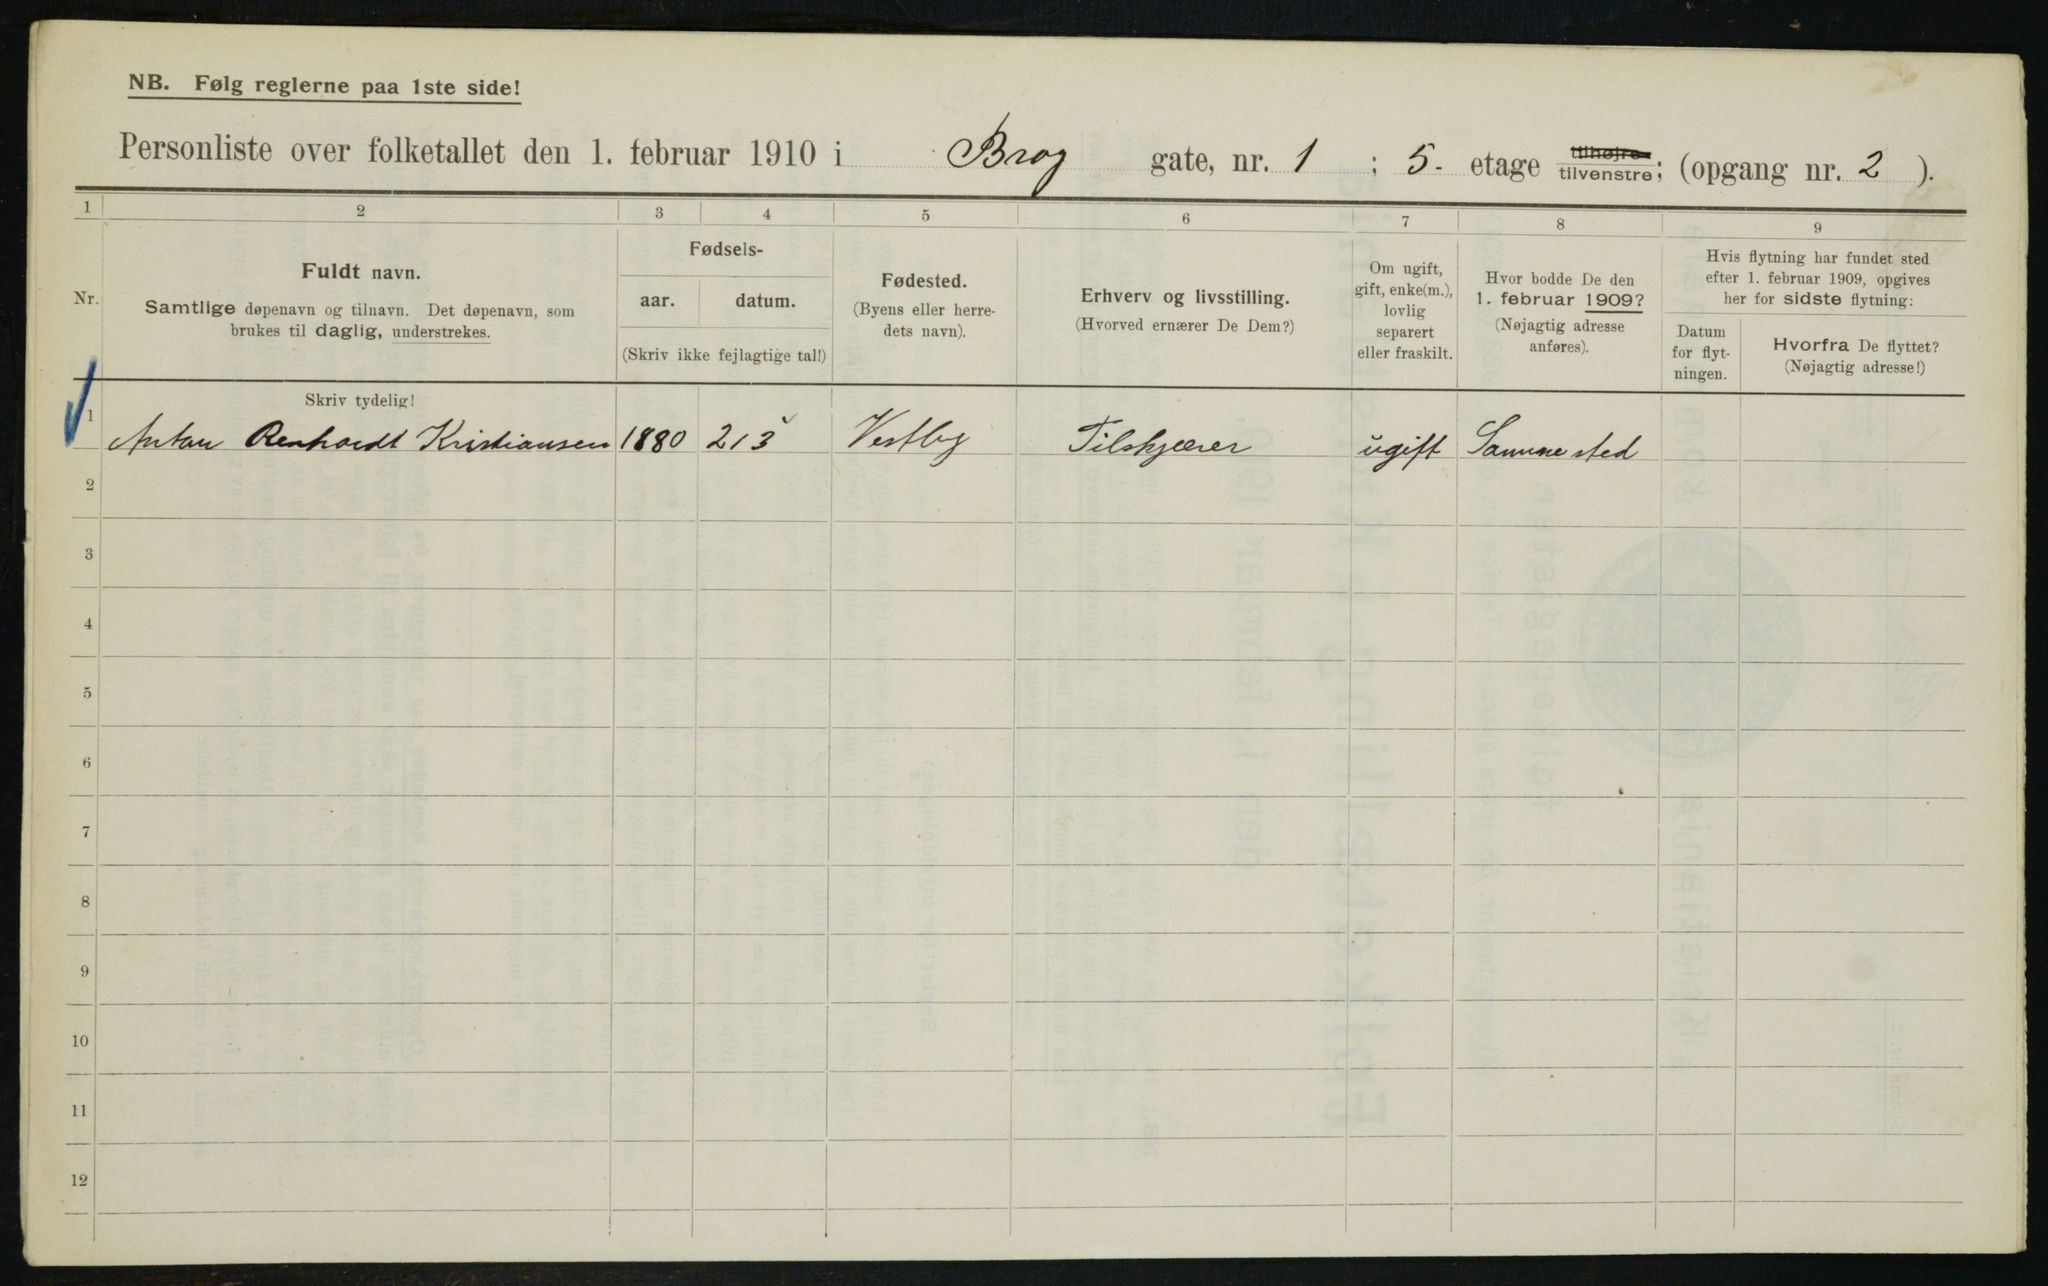 NB. Følg reglerne paa 1ste side!
Personliste over folketallet den 1. februar 1910 i Brog gate, nr. 1 ; 5- etage tilhøjre tilvenstre; (opgang nr. 2 ).
1 2 3 4 5 6 7 8 9
Nr.
Fuldt navn.
Samtlige døpenavn og tilnavn. Det døpenavn, som
brukes til daglig, understrekes.
Fødsels-
aar. datum.
(Skriv ikke fejlagtige tal!)
Fødested.
(Byens eller herre-
dets navn).
Erhverv og livsstilling.
(Hvorved ernærer De Dem?)
Om ugift,
gift, enke(m.),
lovlig
separert
eller fraskilt.
Hvor bodde De den
1. februar 1909?
(Nøjagtig adresse
anføres).
Hvis flytning har fundet sted
efter 1. februar 1909, opgives
her for sidste flytning:
Datum
for flyt-
ningen.
Hvorfra De flyttet?
(Nøjagtig adresse!)
Skriv tydelig!
1 Anton Renhardt Kristiansen 1880 21 3 Vestby Tilskjærer ugift Samme sted
2
3
4
5
6
7
8
9
10
11
12